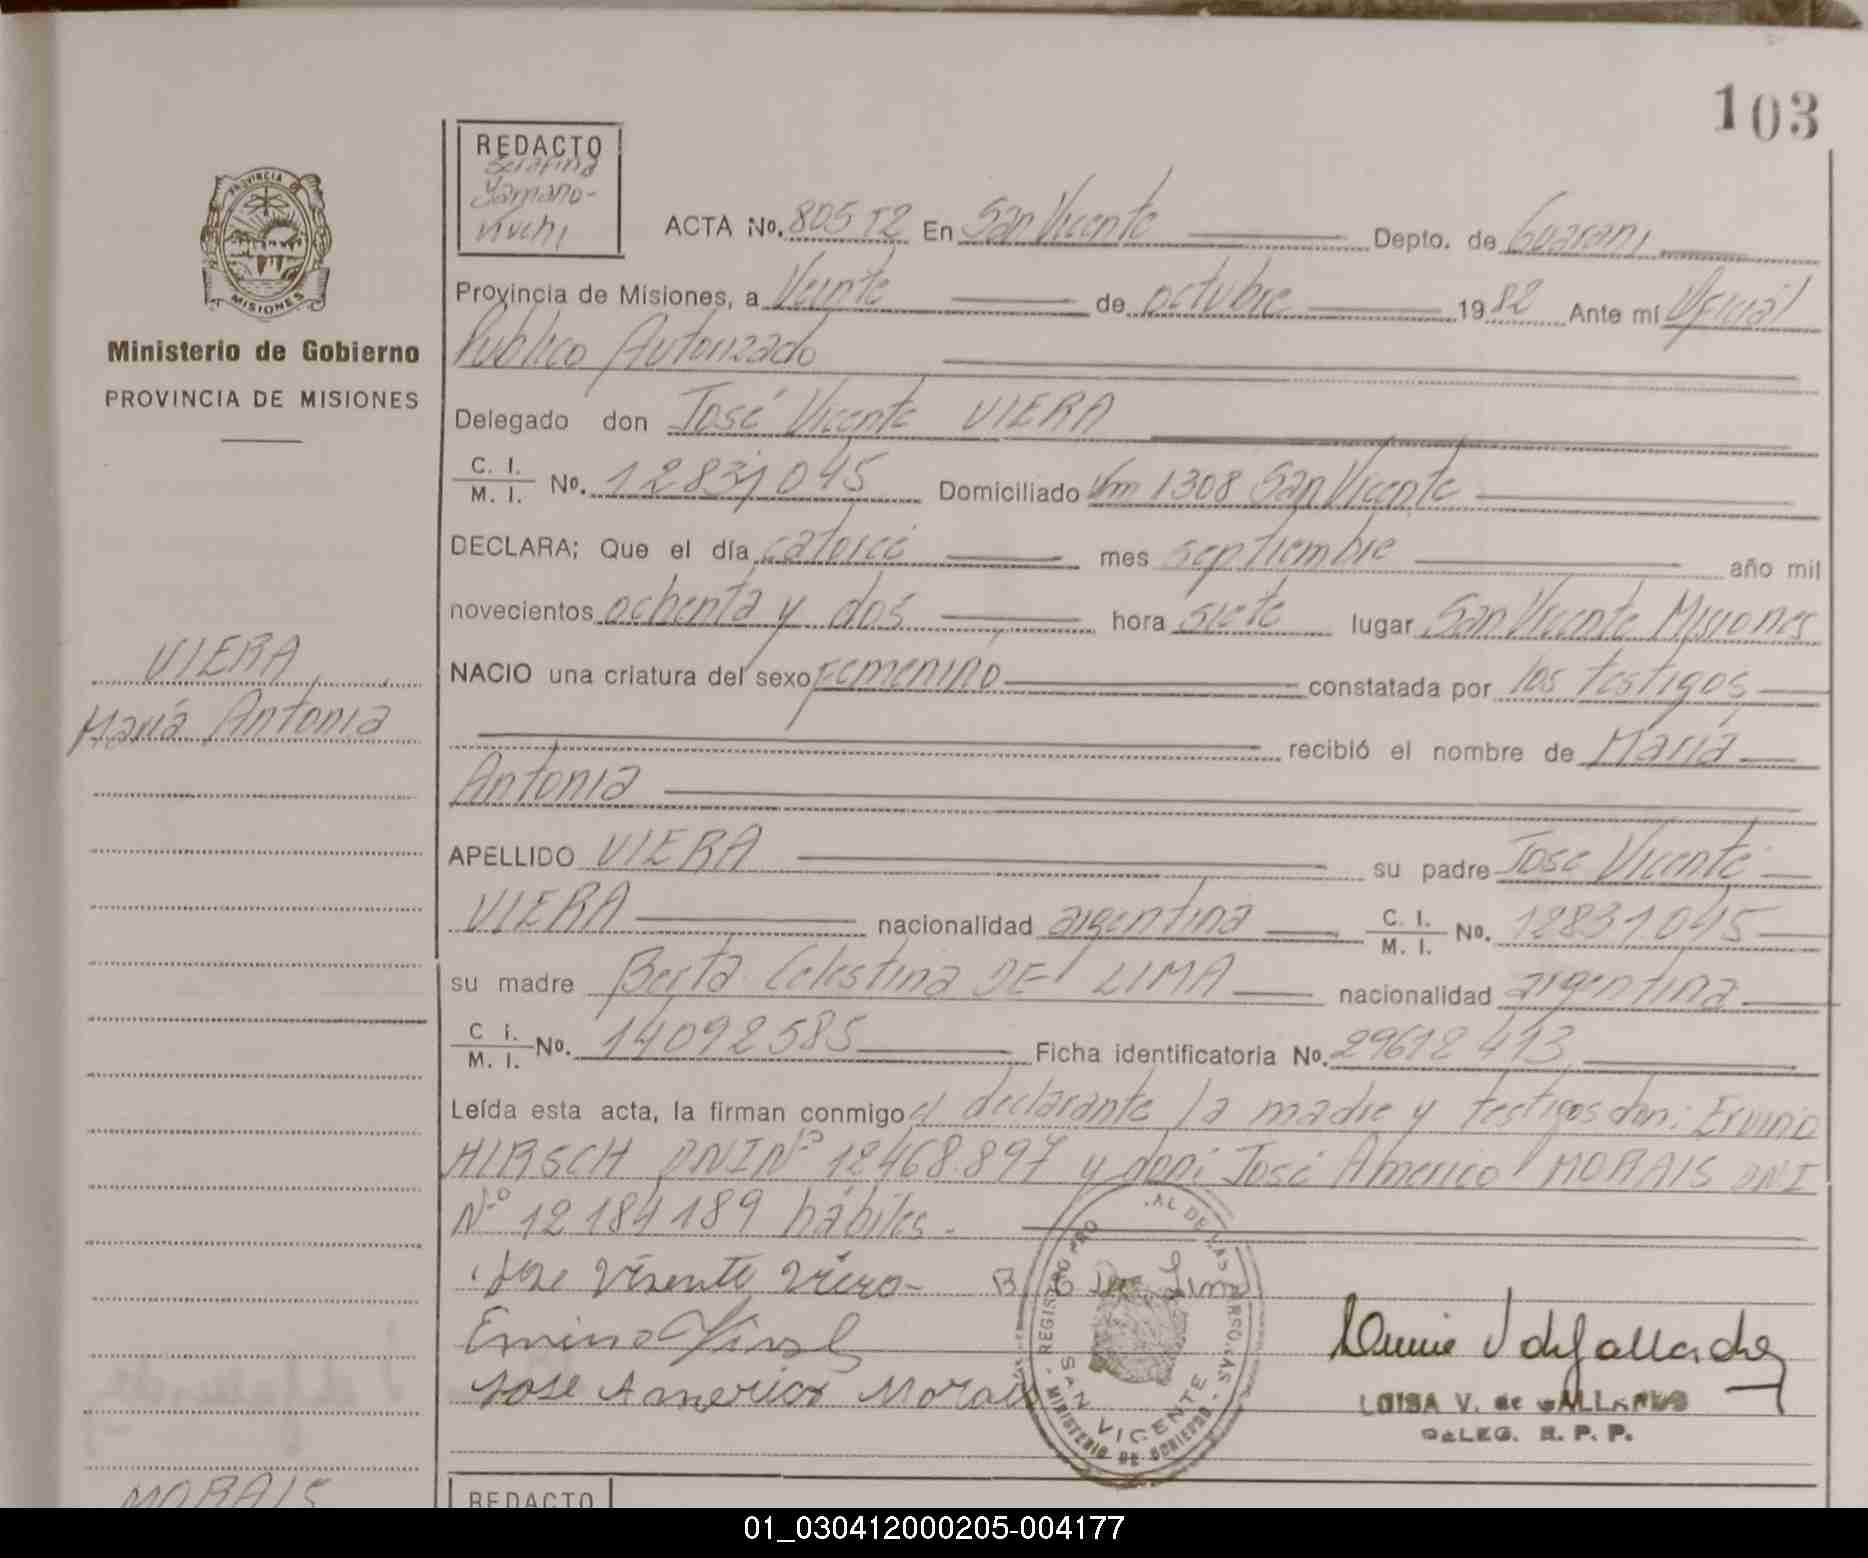 103
REDACTO
Serafina
Yamano-
ACTA Nº. 805 T2 En San Vicente Depto. de Guaraní
PROVINCIA
MISIONES
Ministerio de Gobierno
PROVINCIA DE MISIONES
Provincia de Misiones, a Veinte de octubre 1982 Ante mí Oficial
Público Autorizado
Delegado don José Vicente VIERA
C. I.
M. I. Nº. 12831045 Domiciliado Km 1308 San Vicente
DECLARA; Que el día catorce mes septiembre año mil
novecientos ochenta y dos hora siete lugar San Vicente Misiones
VIERA
María Antonia
NACIO una criatura del sexo Femenino constatada por los testigos
recibió el nombre de María
Antonia
APELLIDO VIERA su padre José Vicente
VIERA nacionalidad argentina C. I. M. I. Nº. 12831045
su madre Berta Celestina DE LIMA nacionalidad argentina
C I. M. I. Nº. 14092585 Ficha identificatoria Nº. 29612413
Leída esta acta, la firman conmigo el declarante la madre y testigos don: Ervino
HIRSCH DNI Nº 12468.897 y don: José Americo MORAIS DNI
Nº 12184189 hábiles.
Jose Visente Viera B C De Lima
Ervino Hirsch
Jose Americo Morais
REGISTRO PRO AL DE LAS PERSONAS
SAN VICENTE
MINISTERIO DE GOBIERNO
LUISA V. de GALLARDO
DELEG. R. P. P.
MORAIS
REDACTO
01_030412000205-004177